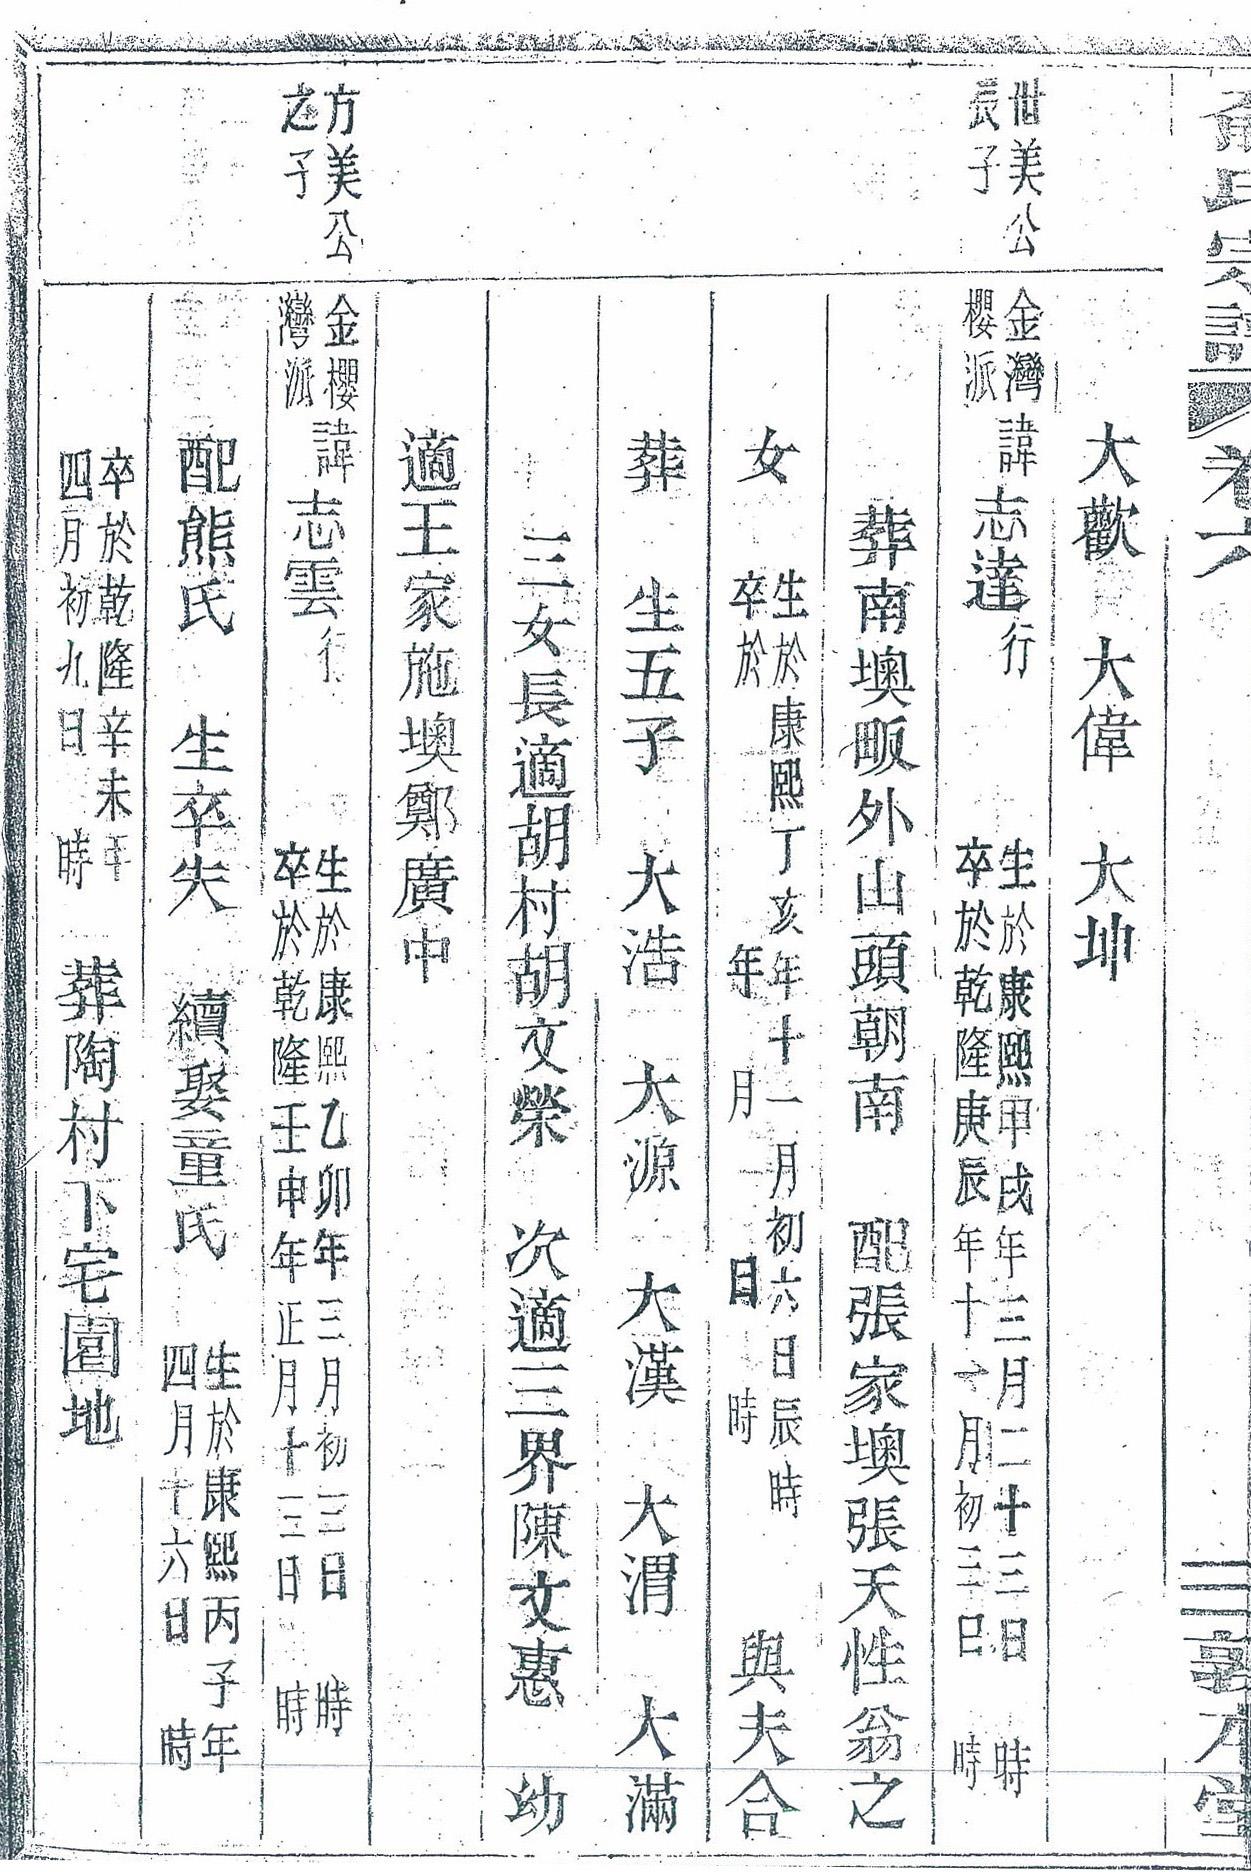 俞氏宗譜 卷六 三 敦本堂
大歡 大偉 大坤
世美公
長子
金灣
櫻派
諱志達行
生於康熙甲戌年三月二十三日 時
卒於乾隆庚辰年十一月初三日 時
葬南墺畈外山頭朝南 配張家墺張天性翁之
女
生於康熙丁亥年十一月初六日辰時
卒於 年 月 日 時
與夫合
葬 生五子 大浩 大源 大漢 大渭 大滿
三女長適胡村胡文榮 次適三界陳文惠 幼
適王家施墺鄭廣中
方美公
之子
金櫻
灣派
諱志雲行
生於康熙乙卯年三月初三日 時
卒於乾隆壬申年正月十三日 時
配熊氏 生卒失 續娶童氏
生於康熙丙子年
四月十六日 時
卒於乾隆辛未年
四月初九日 時
葬陶村下宅園地